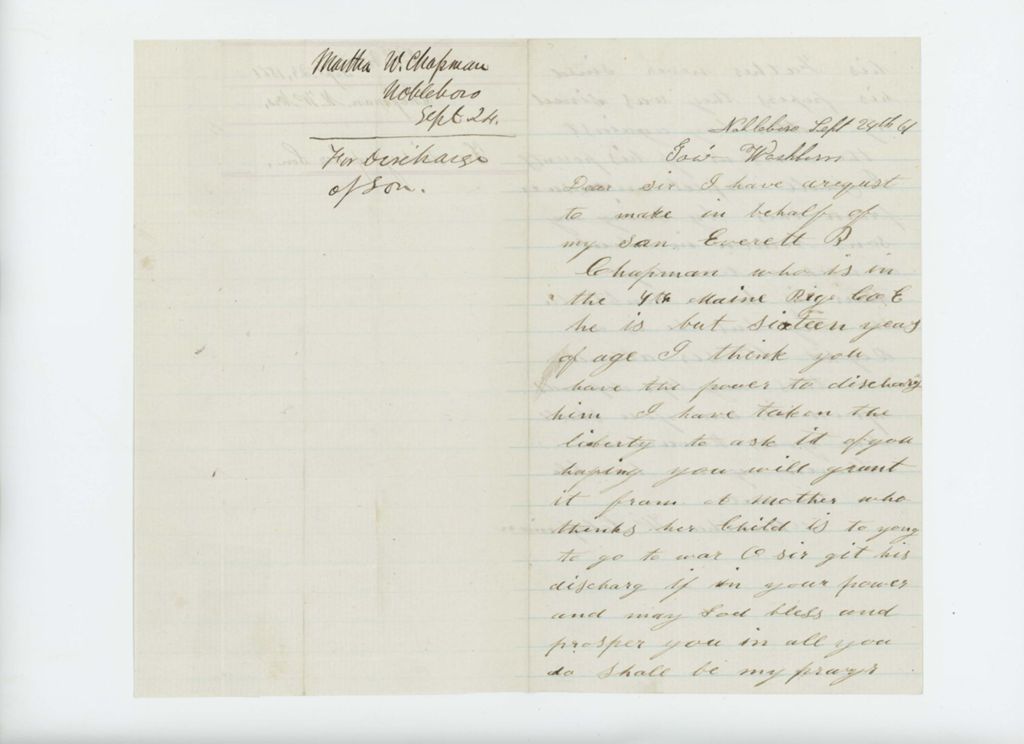 Martha W. Chapman
Nobleboro
Sept. 24.
For Discharge
of Son.
Nobleboro Sept 24th 61
Gov Washburn
Dear sir I have arequst
to make in behalf of
my son Everett R
Chapman who is in
the 4th Maine Reg Co E
he is but sixteen years
of age I think you
have the power to discharg
him I have taken the
liberty to ask it of you
hoping you will grant
it from a Mother who
thinks her Child is to yong
to go to war O sir git his
discharg if in your power
and may God bless and
prosper you in all you
do shall be my prayr